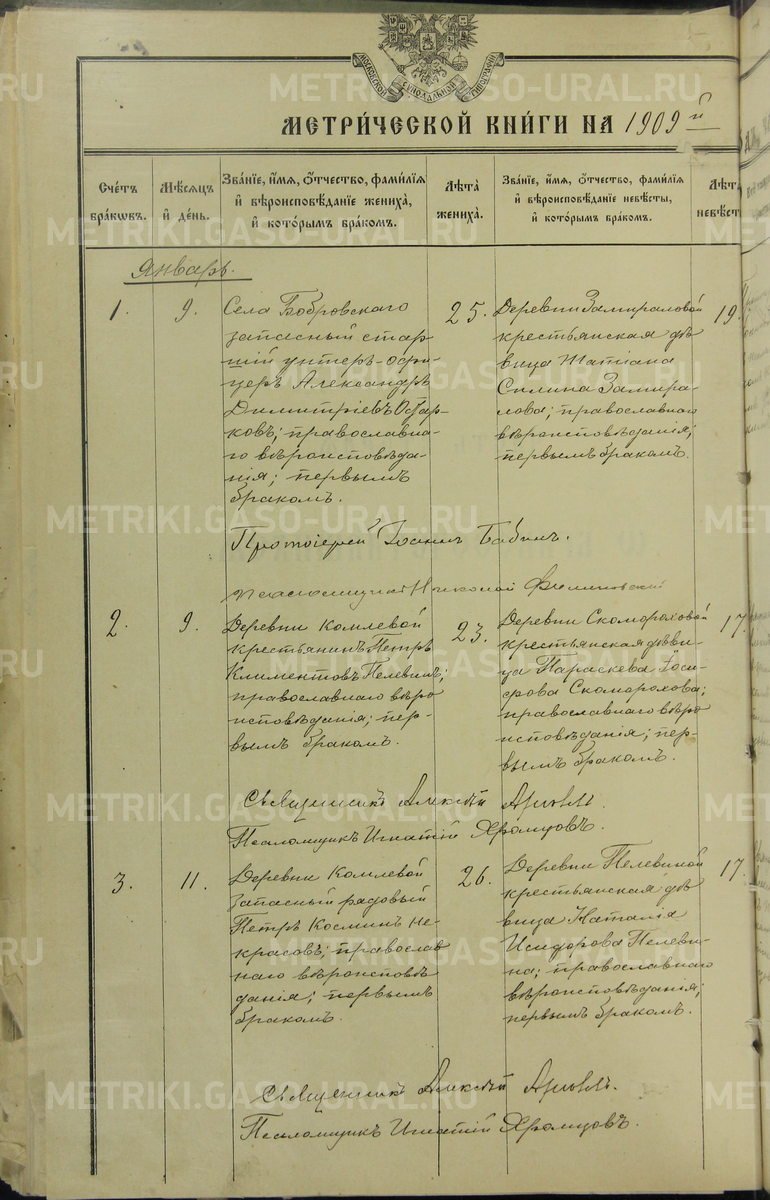 МОСКОВСКОЙ СѴНОДАЛЬНОЙ ТИПОГРАФІИ
МЕТРИ́ЧЕСКОЙ КНИ́ГИ НА 1909й
Сче́тъ бра́кѡвъ.
Мѣ́сѧцъ и҆ де́нь.
Зва́нїе, и҆́мѧ, ѻ҆́тчество, фами́лїѧ
и҆ вѣроисповѣ́данїе жениха̀,
и҆ кото́рымъ бра́комъ.
Лѣта̀ жениха̀.
Зва́нїе, и҆́мѧ, ѻ҆́тчество, фами́лїѧ
и҆ вѣроисповѣ́данїе невѣ́сты,
и҆ кото́рымъ бра́комъ.
Лѣта̀
невѣ́ст
Январь.
1.
9.
Села Бобровскаго
запасный стар
шій унтеръ-офи-
церъ Александръ
Димитріевъ
ковъ; православна-
го вѣроисповѣда-
нія; первымъ
бракомъ.
25.
Деревни Замираловой
крестьянская дѣ
вица Татіана
Силина Замира-
лова; православнаго
вѣроисповѣданія;
первымъ бракомъ.
19.
Протоіерей Іоаннъ Бабинъ.
Николай
2.
9.
Деревни Комлевой
крестьянинъ Петръ
Климентовъ Пелевинъ;
православнаго вѣро
исповѣданія; пер-
вымъ бракомъ.
23.
Деревни Скомороховой
крестьянская дѣви-
ца Параскева Іоси-
фова Скоморохова;
православнаго вѣро
исповѣданія; пер-
вымъ бракомъ.
17.
Священникъ Алексѣй
Псаломщикъ Игнатій Хромцовъ.
3.
11.
Деревни Комлевой
запасный рядовый
Петръ Косминъ Не-
красовъ; православ
наго вѣроисповѣ
данія; первымъ
бракомъ.
26.
Деревни Пелевиной
крестьянская дѣ
вица Наталія
Исидорова Пелеви-
на; православнаго
вѣроисповѣданія;
первымъ бракомъ.
17.
Священникъ Алексѣй
Псаломщикъ Игнатій Хромцовъ.
METRIKI.GASO-URAL.RU